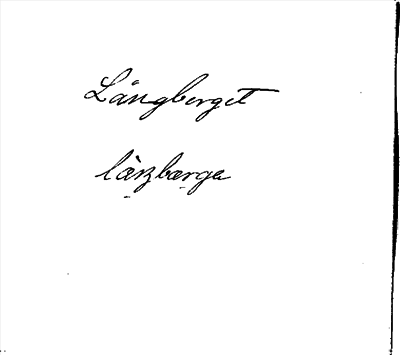 Långberget
làŋbærge